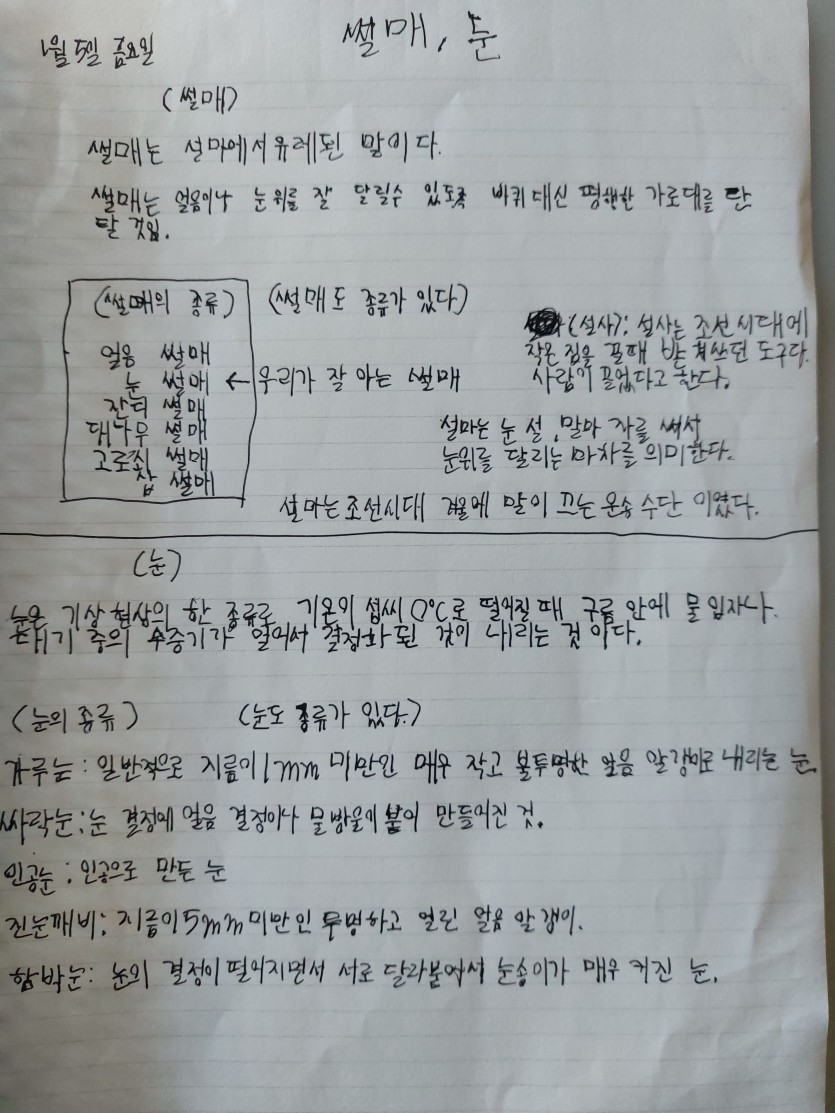 1월 5일 금요일
썰매, 눈
(썰매)
썰매는 설마에서 유레된 말이다.
썰매는 얼음이나 눈 위를 잘 달릴수 있도록 바퀴 대신 평행한 가로대를 단
탈 것임.
(썰매의 종류)
얼음 썰매
눈 썰매
잔디 썰매
대나무 썰매
고로쇠 썰매
찹 썰매
(썰매도 종류가 있다)
← 우리가 잘 아는 썰매
(설사): 설사는 조선시대에
작은 짐을 끌때 쓰던 도구다.
사람이 끌었다고 한다.
설마는 눈 설, 말마 자를 써서
눈위를 달리는 마차를 의미한다.
설마는 조선시대 겨울에 말이 끄는 운송 수단 이였다.
(눈)
눈은 기상 현상의 한 종류로 기온이 섭씨 0°C로 떨어질 때 구름 안에 물 입자나
대기 중의 수증기가 얼어서 결정화 된 것이 내리는 것 이다.
(눈의 종류)
(눈도 종류가 있다.)
가루눈: 일반적으로 지름이 1mm 미만인 매우 작고 불투명한 얼음 알갱이로 내리는 눈.
싸락눈: 눈 결정에 얼음 결정이나 물방울이 붙어 만들어진 것.
인공눈: 인공으로 만든 눈
진눈깨비: 지름이 5mm 미만인 투명하고 얼린 얼음 알갱이.
함박눈: 눈의 결정이 떨어지면서 서로 달라붙어서 눈송이가 매우 커진 눈.